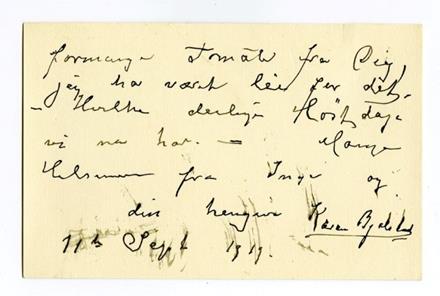 formange Tomater fra Dig,
jeg har været lei for det.
– Hvilke deilige Høstdage
vi na har. – Mange
Hilsener fra Inge og
din hengivne Karen Bjelstad
11th Sept 1919.